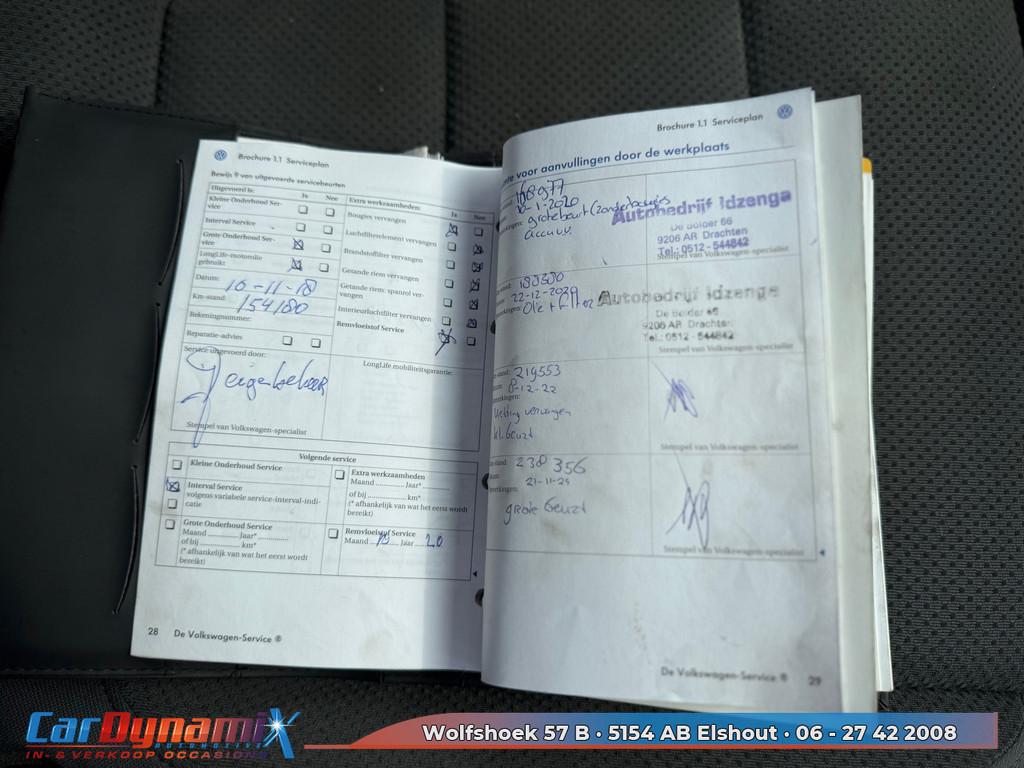 Brochure 1.1 Serviceplan
Bewijs 9 van uitgevoerde servicebeurten
Uitgevoerd is: Ja Nee
Kleine Onderhoud Ser-
vice
Interval Service
Grote Onderhoud Ser-
vice
LongLife-motorolie
gebruikt
Datum:
16-11-18
Km-stand:
154180
Rekeningnummer:
Reparatie-advies
Service uitgevoerd door:
Stempel van Volkswagen-specialist
Extra werkzaamheden: Ja Nee
Bougies vervangen
Luchtfilterelement vervangen
Brandstoffilter vervangen
Getande riem vervangen
Getande riem: spanrol ver-
vangen
Interieurluchtfilter vervangen
Remvloeistof Service
LongLife mobiliteitsgarantie:
Volgende service
Kleine Onderhoud Service
Interval Service
volgens variabele service-interval-indi-
catie
Grote Onderhoud Service
Maand ........ Jaar* ............
of bij ................ km*
(* afhankelijk van wat het eerst wordt
bereikt)
Extra werkzaamheden
Maand ........ Jaar* ........
of bij ................ km*
(* afhankelijk van wat het eerst wordt
bereikt)
Remvloeistof Service
Maand Jaar 20
28 De Volkswagen-Service ®
Brochure 1.1 Serviceplan
voor aanvullingen door de werkplaats
-1-2020
grote beurt (zonder bougies
accu vv.
Autobedrijf Idzenga
De Bolder 66
9206 AR Drachten
Tel.: 0512 - 544842
Stempel van Volkswagen-specialist
22-12-2020
Olie + filter
Autobedrijf Idzenga
De Bolder 66
9206 AR Drachten
Tel.: 0512 - 544842
Stempel van Volkswagen-specialist
219553
8-12-22
vervangen
Kl. Beurt
Stempel van Volkswagen-specialist
238 356
21-11-24
grote Beurt
Stempel van Volkswagen-specialist
De Volkswagen-Service ® 29
CarDynamiX
AUTOMOTIVE
IN- & VERKOOP OCCASIONS
Wolfshoek 57 B • 5154 AB Elshout • 06 - 27 42 2008